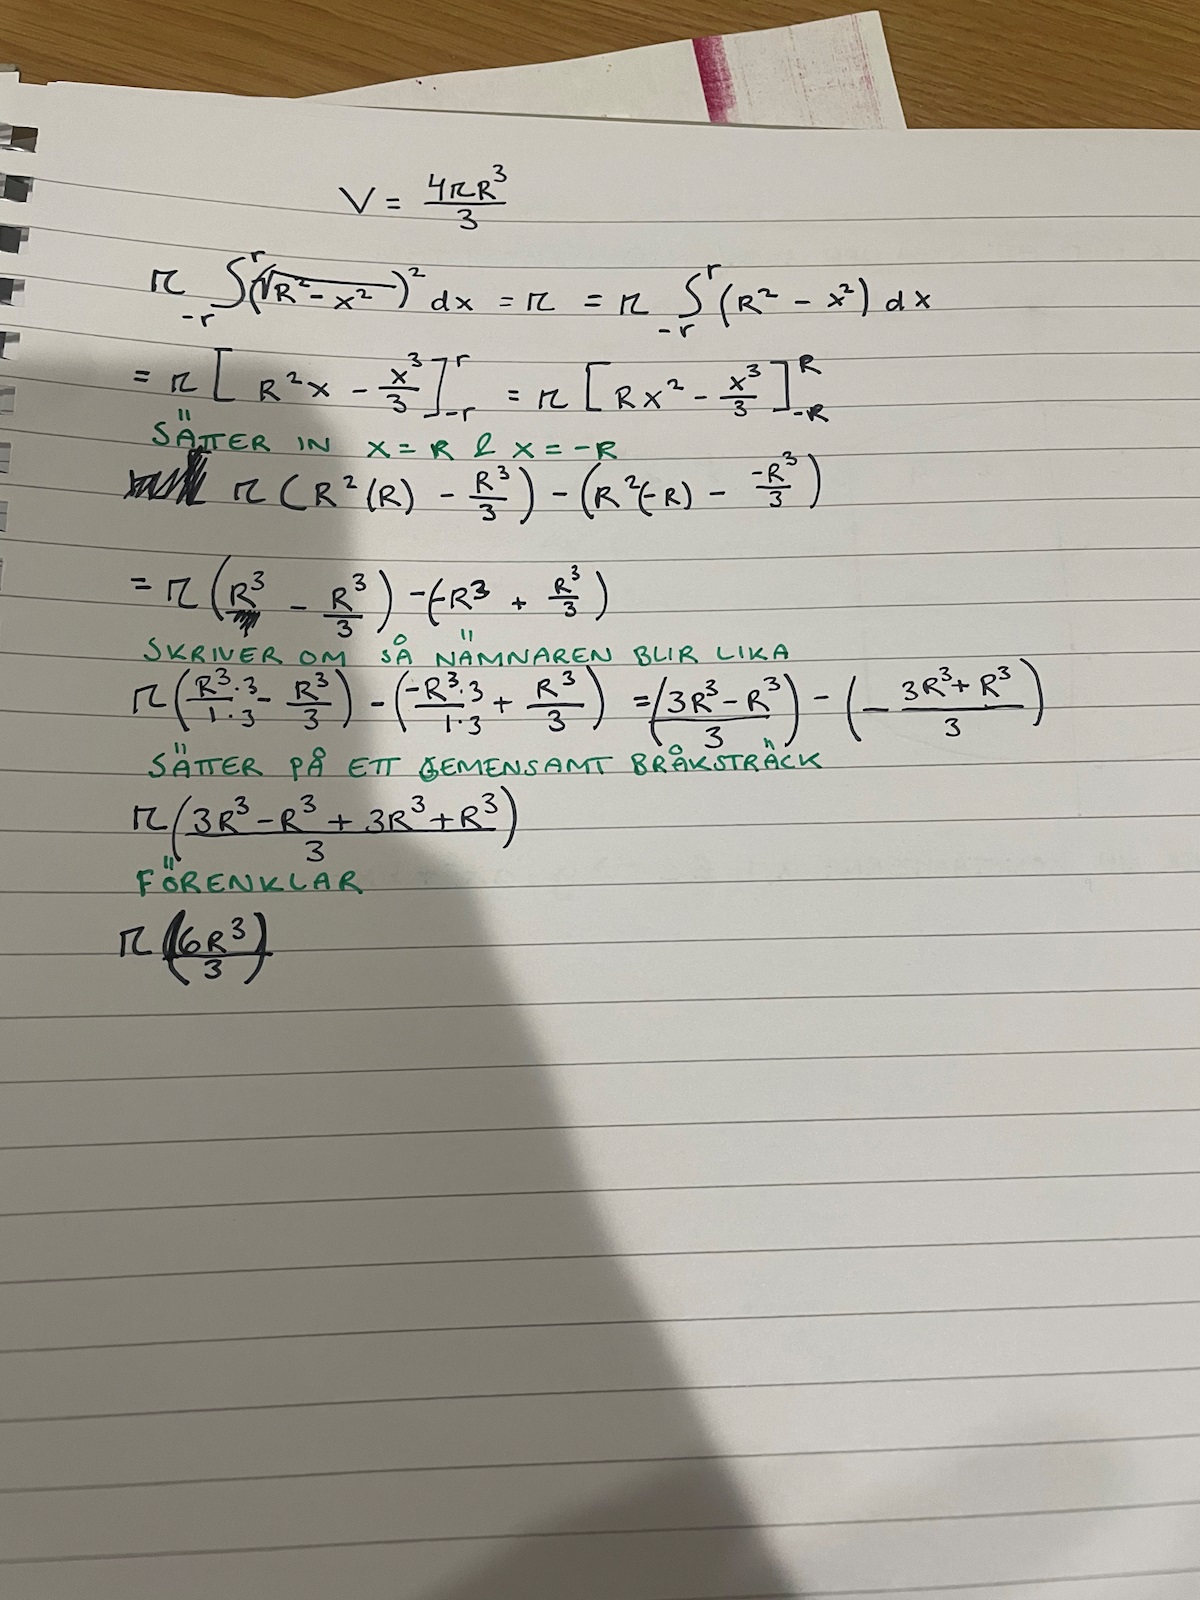 V = 4πR³/3
π ∫₋ᵣʳ (√(R² - x²))² dx = π = π ∫₋ᵣʳ (R² - x²) dx
= π [R²x - x³/3]₋ᵣʳ = π [Rx² - x³/3]₋R^R
SÄTTER IN x = R & x = -R
π (R²(R) - R³/3) - (R²(-R) - -R³/3)
= π (R³ - R³/3) - (-R³ + R³/3)
SKRIVER OM SÅ NÄMNAREN BLIR LIKA
π (R³·3/1·3 - R³/3) - (-R³·3/1·3 + R³/3) = (3R³ - R³/3) - (- 3R³ + R³/3)
SÄTTER PÅ ETT GEMENSAMT BRÅKSTRÄCK
π (3R³ - R³ + 3R³ + R³/3)
FÖRENKLAR
π (6R³/3)